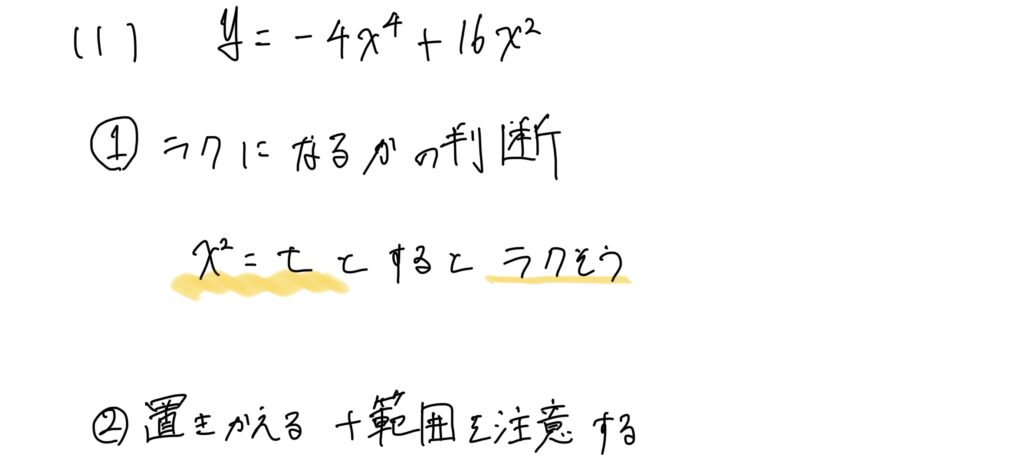 (1) y = -4x⁴ + 16x²
① ラクになるかの判断
x² = t とするとラクそう
② 置きかえる + 範囲を注意する